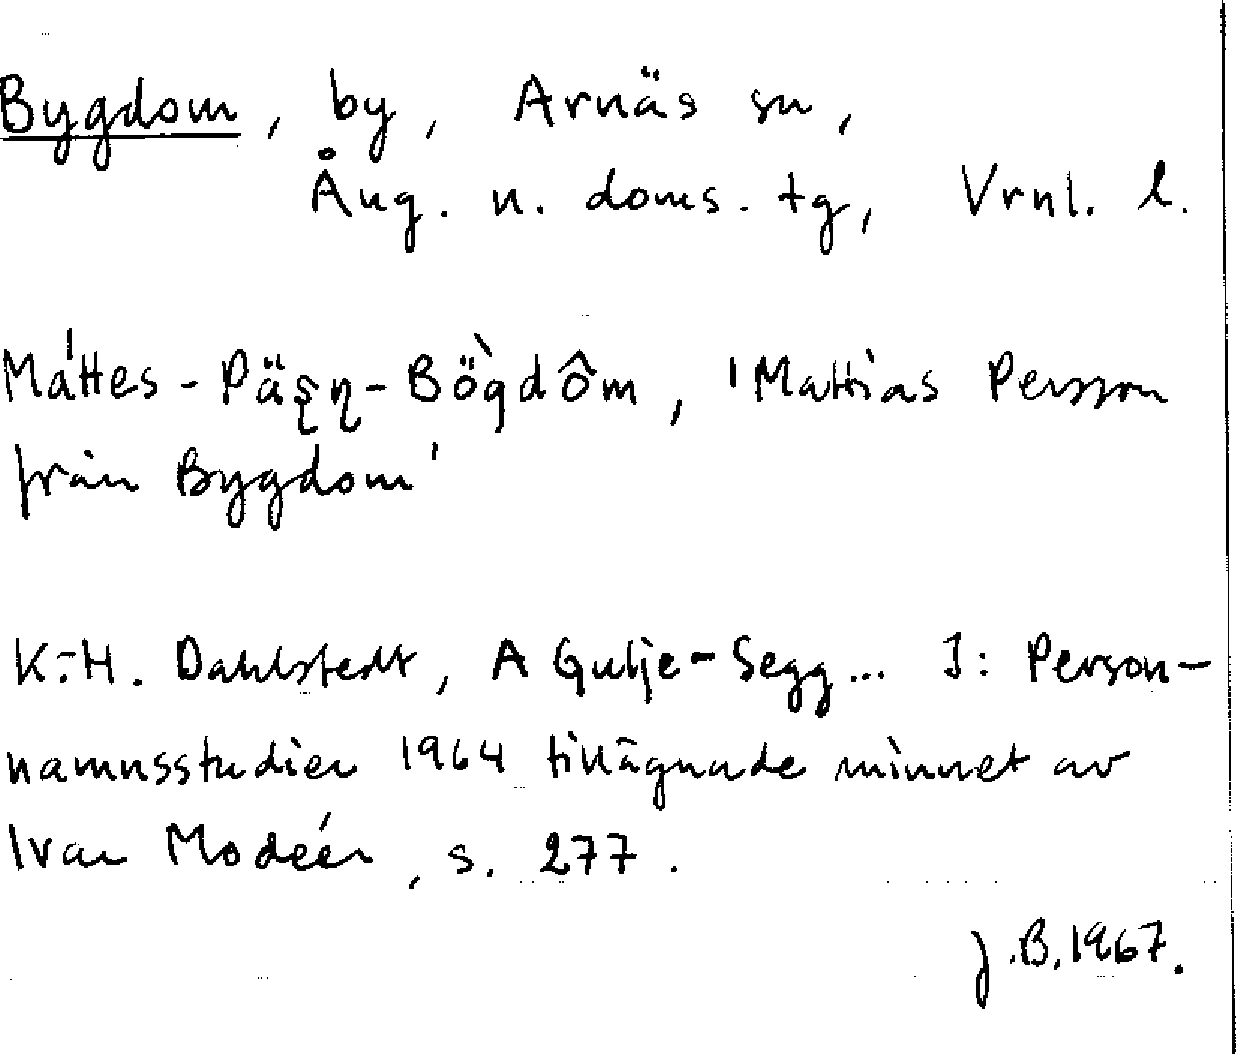 Bygdom, by, Arnäs sn,
Ång. n. doms. tg, Vrnl. l.
Máttes-Päʂɳ-Bö̀gdôm, 'Mattias Persson
från Bygdom'
K.-H. Dahlstedt, A Gulje-Segg... I: Person-
namnsstudier 1964 tillägnade minnet av
Ivar Modéer, s. 277.
J.B. 1967.